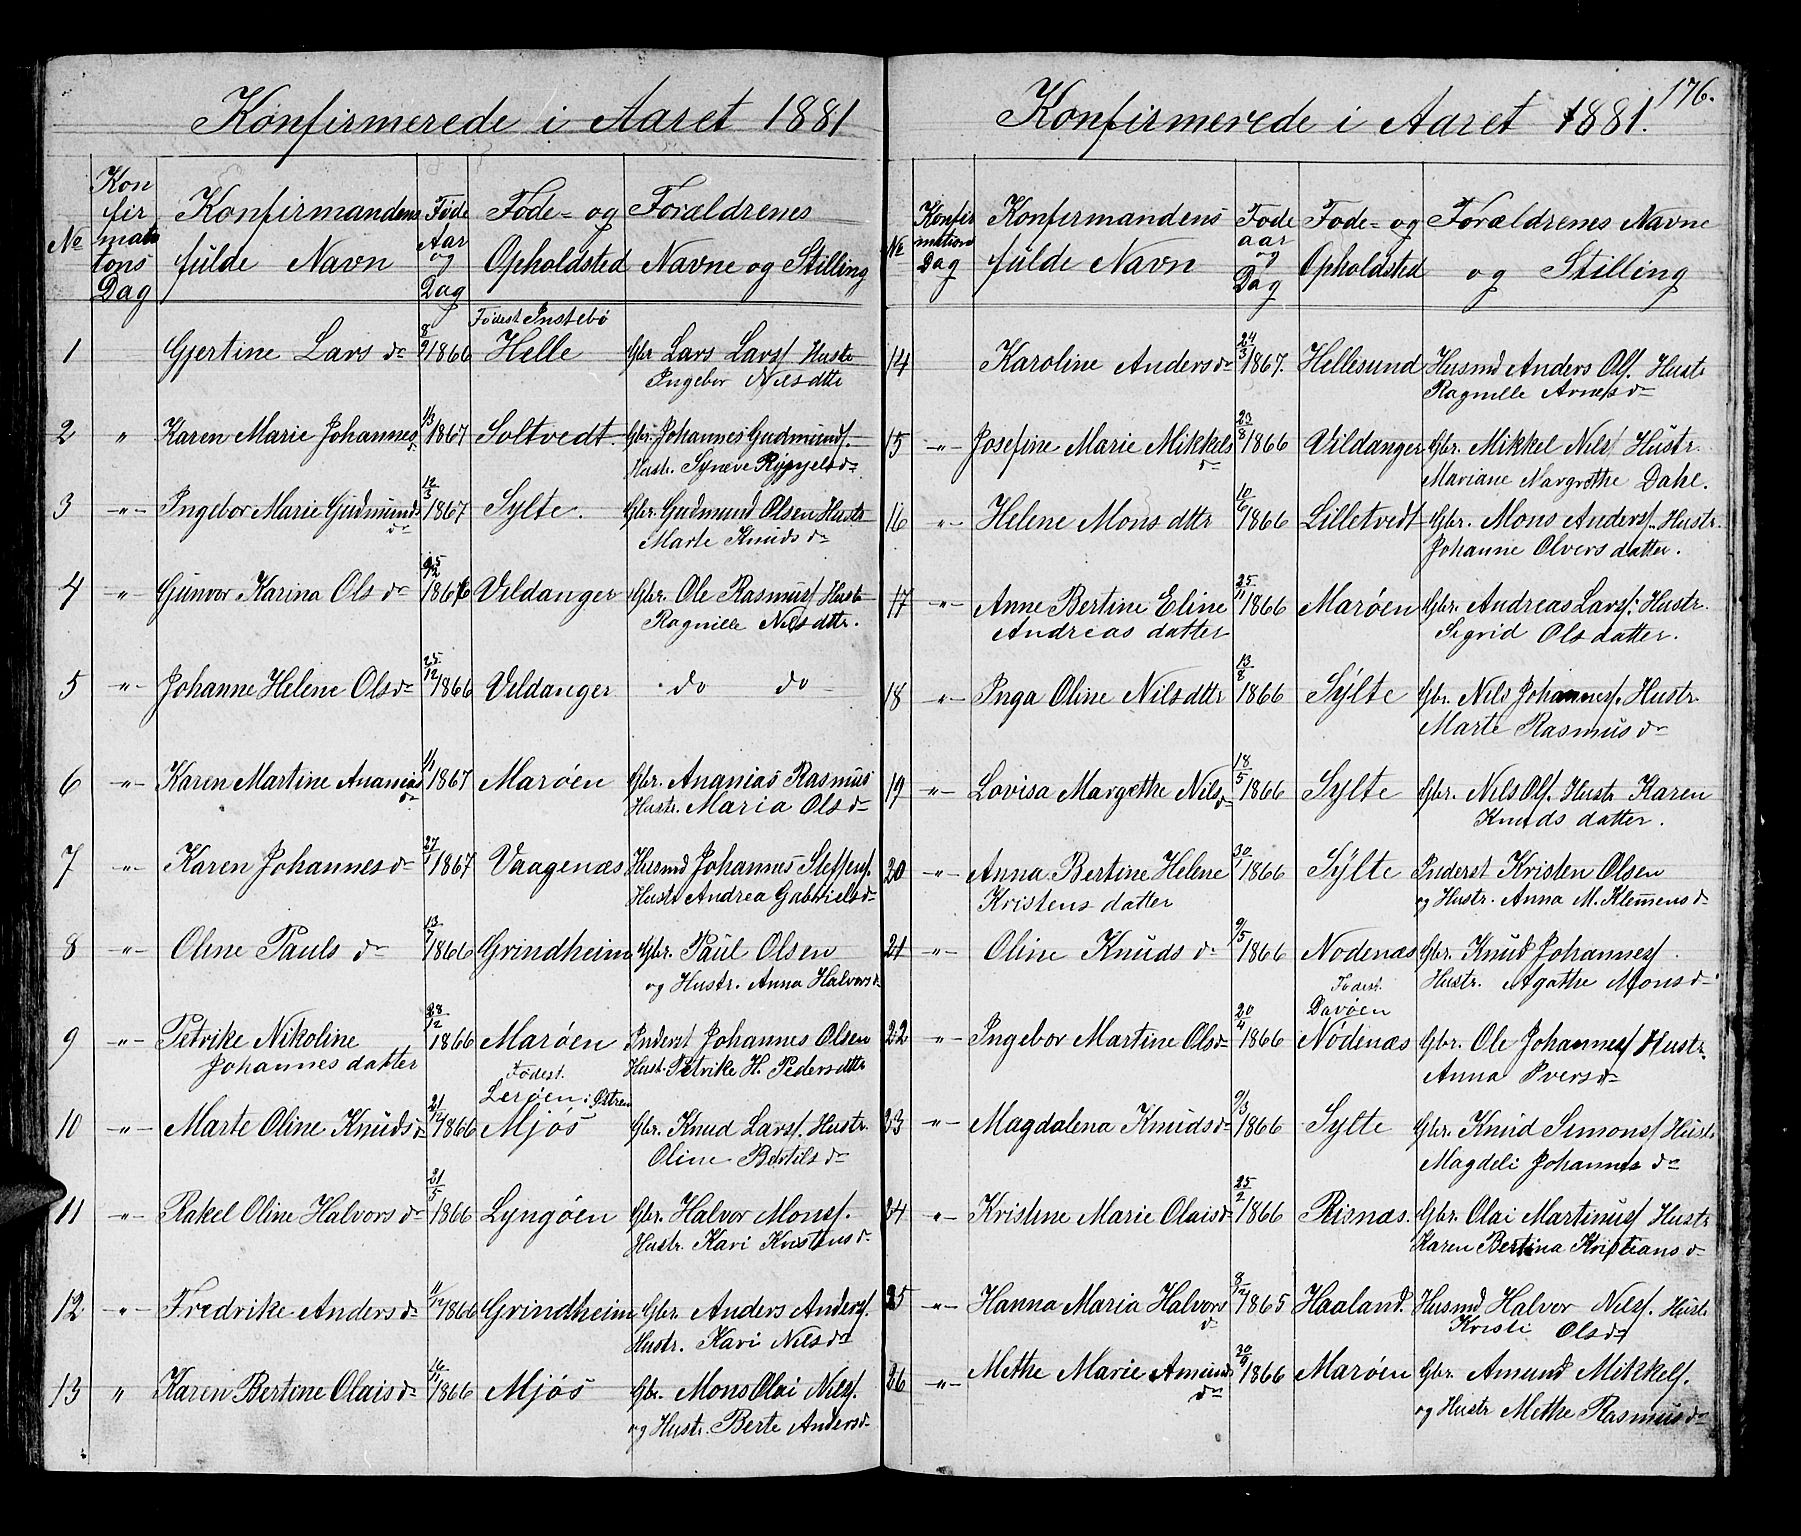 Konfirmerede i Aaret 1881
No
Kon
fir
mat
tons
Dag
Konfirmandens
fulde Navn
Føde
Aar
og
Dag
Føde- og
Opholdsted
Forældrenes
Navne og Stilling
1 Gjertine Lars dr 8/9 1866 Fødest Instebö Helle Gbr Lars Lars/ Hustr
Ingebor Nilsdttr
2 " Karen Marie Johannes dr 1/3 1867 Soltvedt Gbr. Johannes Gudmunds/.
Hustr. Synæve
3 -"- Ingebor Marie Gudmunds dr 12/3 1867 Sylte. Gbr. Gudmund Olsen Hustr
Marte Knuds dr
4 -"- Gunvor Karina Ols dr 1866 Vildanger Gbr. Ole Rasmus/ Hustr
Ragnille Nilsdttr.
5 -"- Johanne Helene Olsdr 25/12 1866 Vildanger do do
6 -"- Karen Martine Ananias dr 1/1 1867 Marøen Gbr. Ananias Rasmus
Hustr. Maria Ols dr
7 -"- Karen Johannesdr 27/1 1867 Vaagenæs Husmd Johannes Steffens/.
Hustr Andrea Gabrielsdr
8 -"- Oline Pauls dr 13/7 1866 Grindheim Gbr. Paul Olsen
og Hustr. Anna Halvorsdr
9 -"- Petrike Nikoline 28/12 1866 Marøen Inderst Johannes Olsen
Johannes datter Hust. Petrike H. Pedersdttr
10 -"- Marte Oline Knudsdr 21/12 1866 Fødest. Lerøen i Østren Mjøs Gbr. Knud Lars/. Hustr.
Oline Bertils dr
11 -"- Rakel Oline Halvorsdr 21/5 1866 Lyngøen Gbr. Halvor Mons/.
Hustr. Kari Kristensdr
12 -"- Fredrike Andersdr 1866 Grindheim Gbr. Anders Anders/.
Hustr. Kari Nilsdr
13 " Karen Bertine Olaisdr 16/11 1866 Mjøs Gbr. Mons Olai Nils/.
og Hustr. Berte Andersdr
176.
Konfirmerede i Aaret 1881.
No
Konfir
mations
Dag
Konfirmandens
fulde Navn
Føde
aar
og
Dag
Føde- og
Opholdsted
Forældrenes Navne
og Stilling
14 Karoline Andersdr 24/3 1867. Hellesund Husmd Anders Ols/. Hustr
Ragnille Arnesdr
15 -"- Josefine Marie Mikkels dr 23/8 1866 Vildanger Gbr. Mikkel Nils/ Hustr.
Mariane Margrethe Dahl.
16 -"- Helene Mons dttr 10/6 1866 Lilletvedt Gbr. Mons Anders/. Hustr.
Johanne Olvers datter.
17 -"- Anne Bertine Eline 25/11 1866 Marøen Gbr. Andreas Lars/. Hustr.
Andreas datter Sigrid Olsdatter.
18 -"- Inga Oline Nilsdttr 13/8 1866 Sylte Gbr. Nils Johannes/. Hustr
Marte Rasmus dr
19 -"- Lovisa Margethe Nilsdr 18/5 1866 Sylte Gbr. Nils Ols/. Hustr Karen
Knuds datter.
20 -"- Anna Bertine Helene 30/1 1866 Sylte Inderst Kristen Olsen
Kristens datter og Hustr. Anna M. Klemmensdr
21 -"- Oline Knuds dr 9/5 1866 Nodenæs Gbr. Knud Johannes/.
Hustr. Agathe Monsdr
22 -"- Ingebor Martine Olsdr 20/4 1866 Fødest. Davøen Nødenæs Gbr. Ole Johannes/ Hustr.
Anna Iversdr
23 -"- Magdalena Knudsdr 9/3 1866 Sylte Gbr. Knud Simons/ Hustr
Magdeli Johannes dr
24 -"- Kristine Marie Olaisdr 25/2 1866 Risnæs. Gbr. Olai Martinus/ Hustr
Karen Bertina Kristians dr
25 -"- Hanna Maria Halvors dr 8/12 1865 Haaland. Husmd Halvor Nils/. Hustr
Kristi Olsdr
26 -"- Methe Marie Amunds dr 20/9 1866 Marøen Gbr. Amund Mikkels/.
og Hustr Methe Rasmusdr